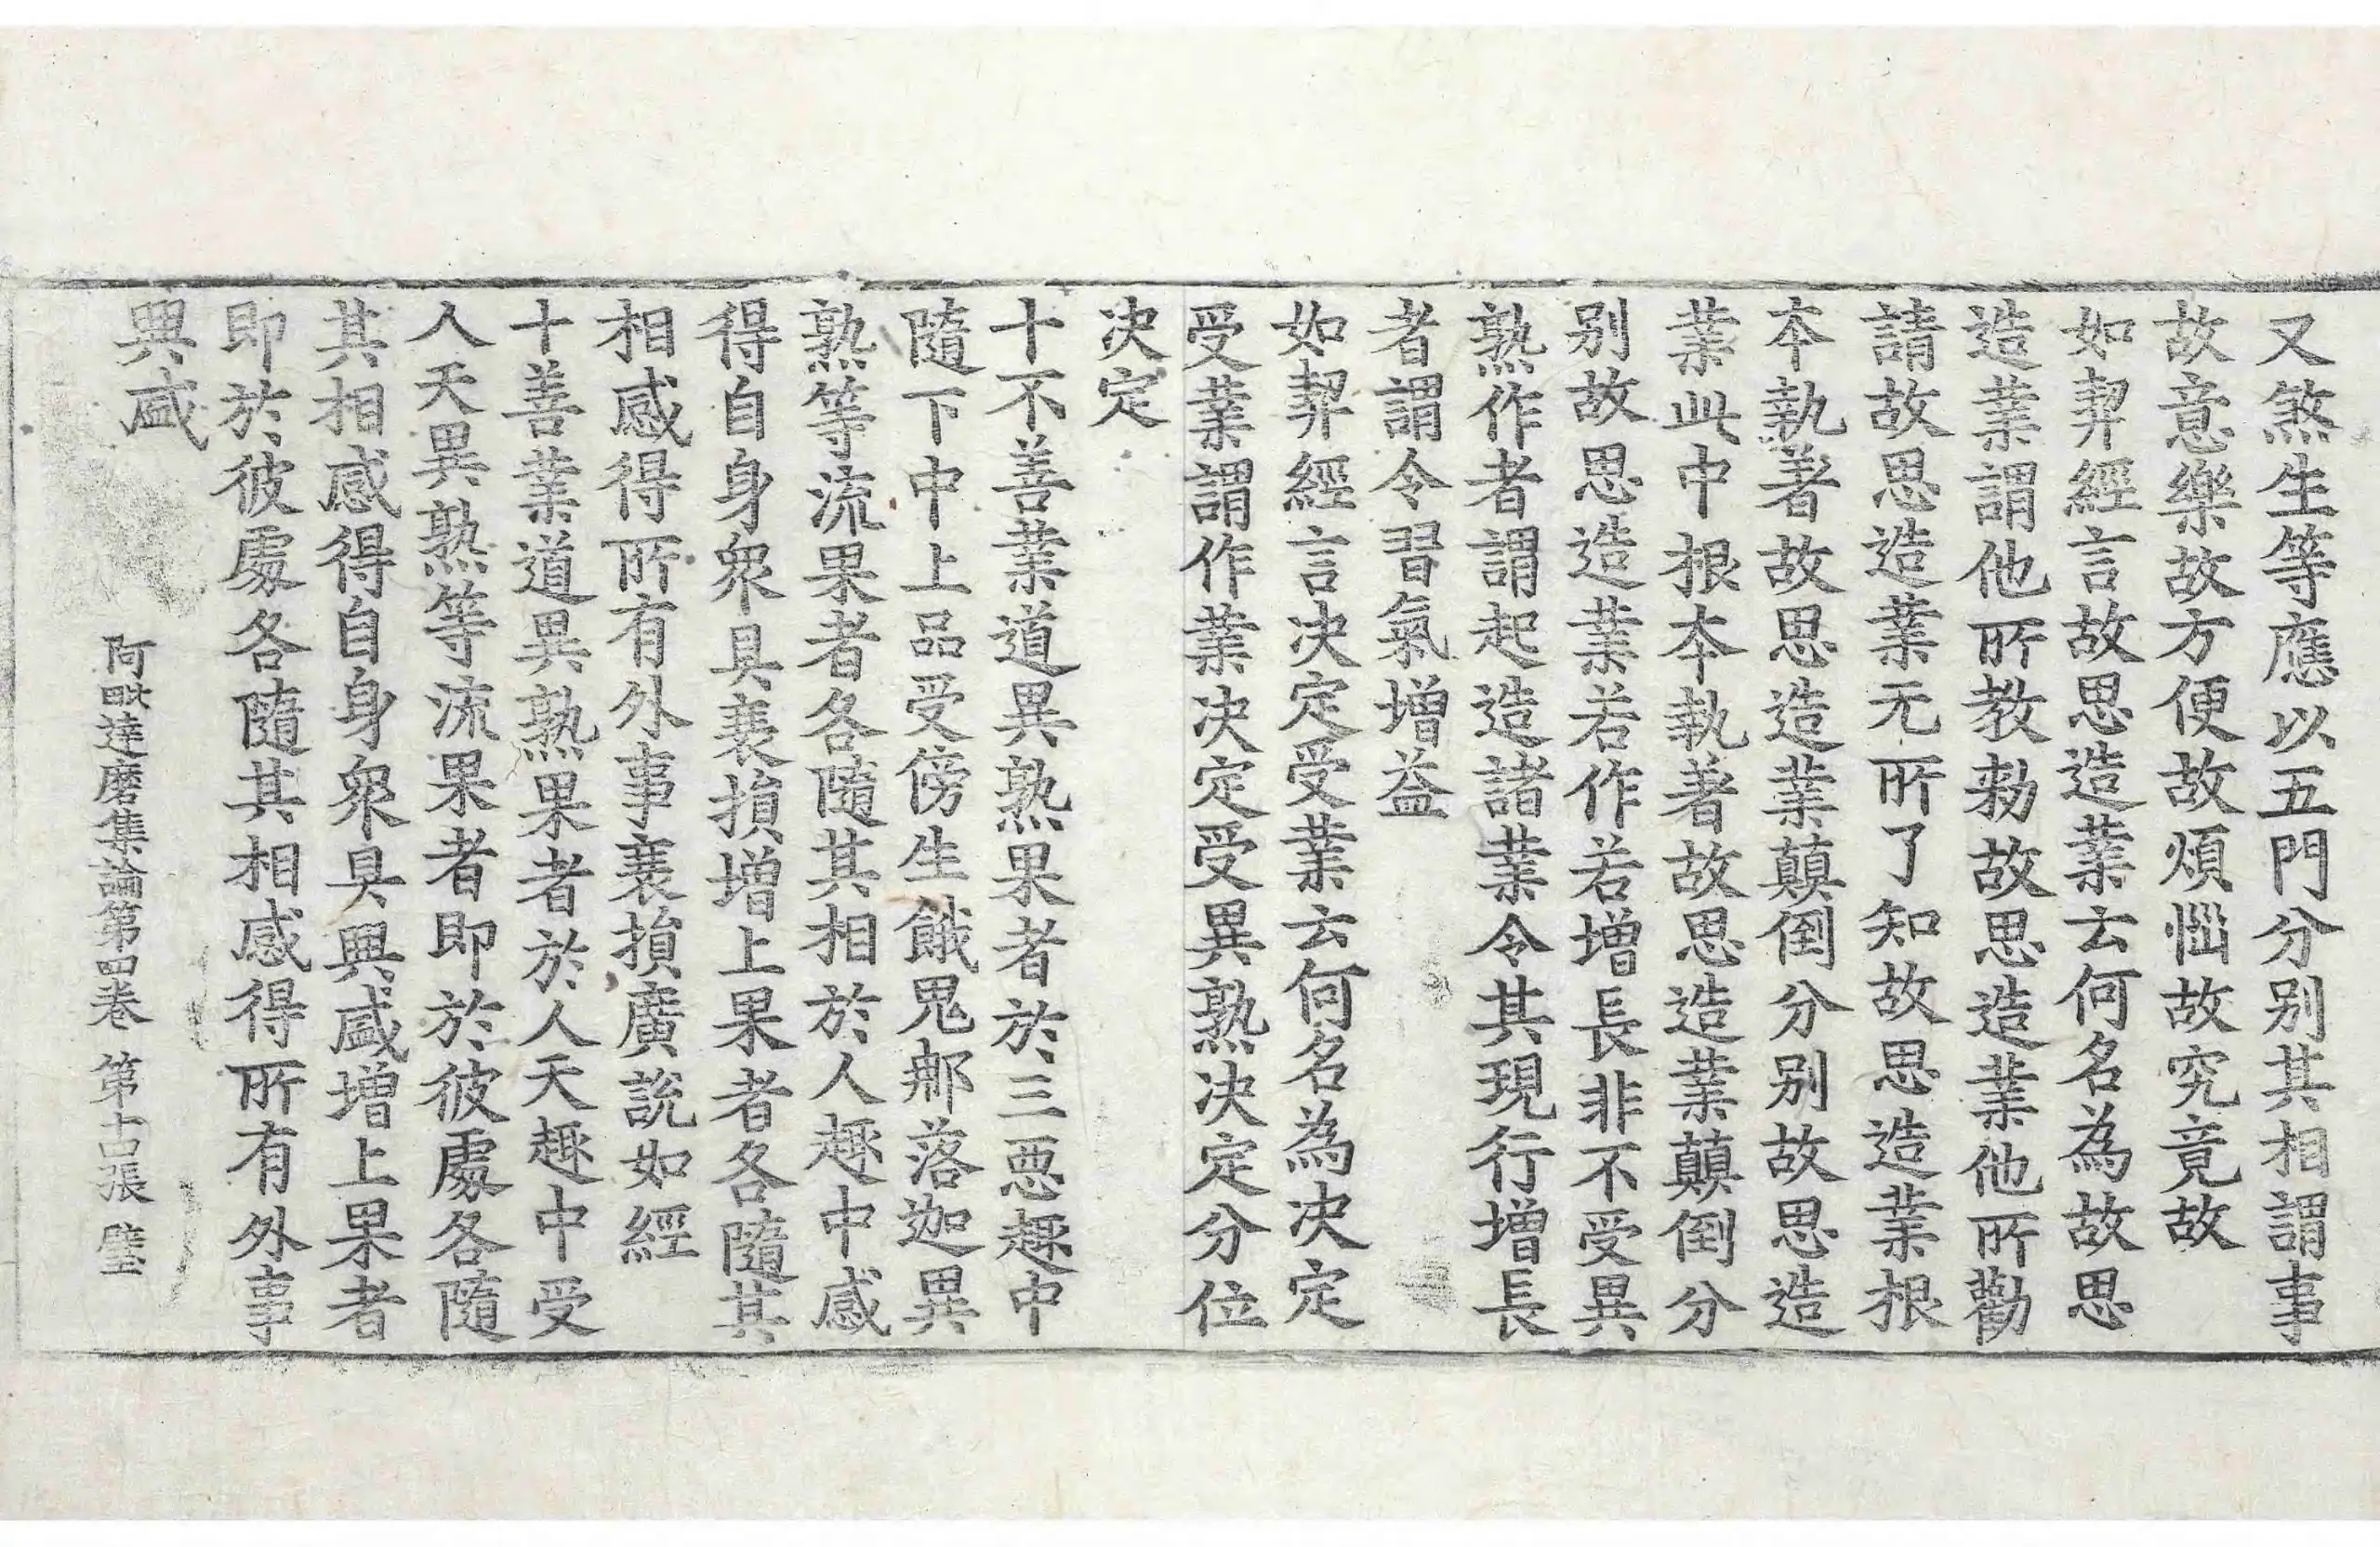 又煞生等應以五門分别其相謂事
故意樂故方便故煩惱故究竟故
如契經言故思造業云何名為故思
造業謂他所教勑故思造業他所勸
請故思造業无所了知故思造業根
本執著故思造業顛倒分别故思造
業此中根本執著故思造業顛倒分
别故思造業若作若增長非不受異
熟作者謂起造諸業令其現行增長
者謂令習氣增益
如契經言决定受業云何名為决定
受業謂作業决定受異熟决定分位
决定
十不善業道異熟果者於三惡趣中
隨下中上品受傍生餓鬼那落迦異
熟等流果者各隨其相於人趣中感
得自身衆具衰損增上果者各隨其
相感得所有外事衰損廣說如經
十善業道異熟果者於人天趣中受
人天異熟等流果者即於彼處各隨
其相感得自身衆具興盛增上果者
即於彼處各隨其相感得所有外事
興盛
阿毗達磨集論第四卷 第十四張 璧